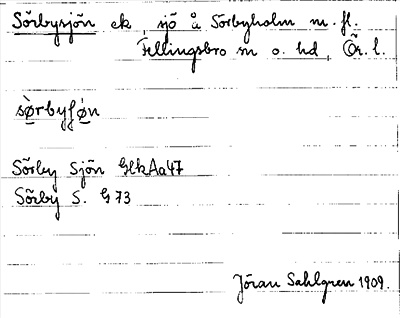 Sörbysjön ek, sjö å Sörbyholm m. fl.
Fellingsbro sn o. hd, Ör. l.
sørbyʃøn
Sörby Sjön GlkAa47
Sörby S. G 73
Jöran Sahlgren 1909.